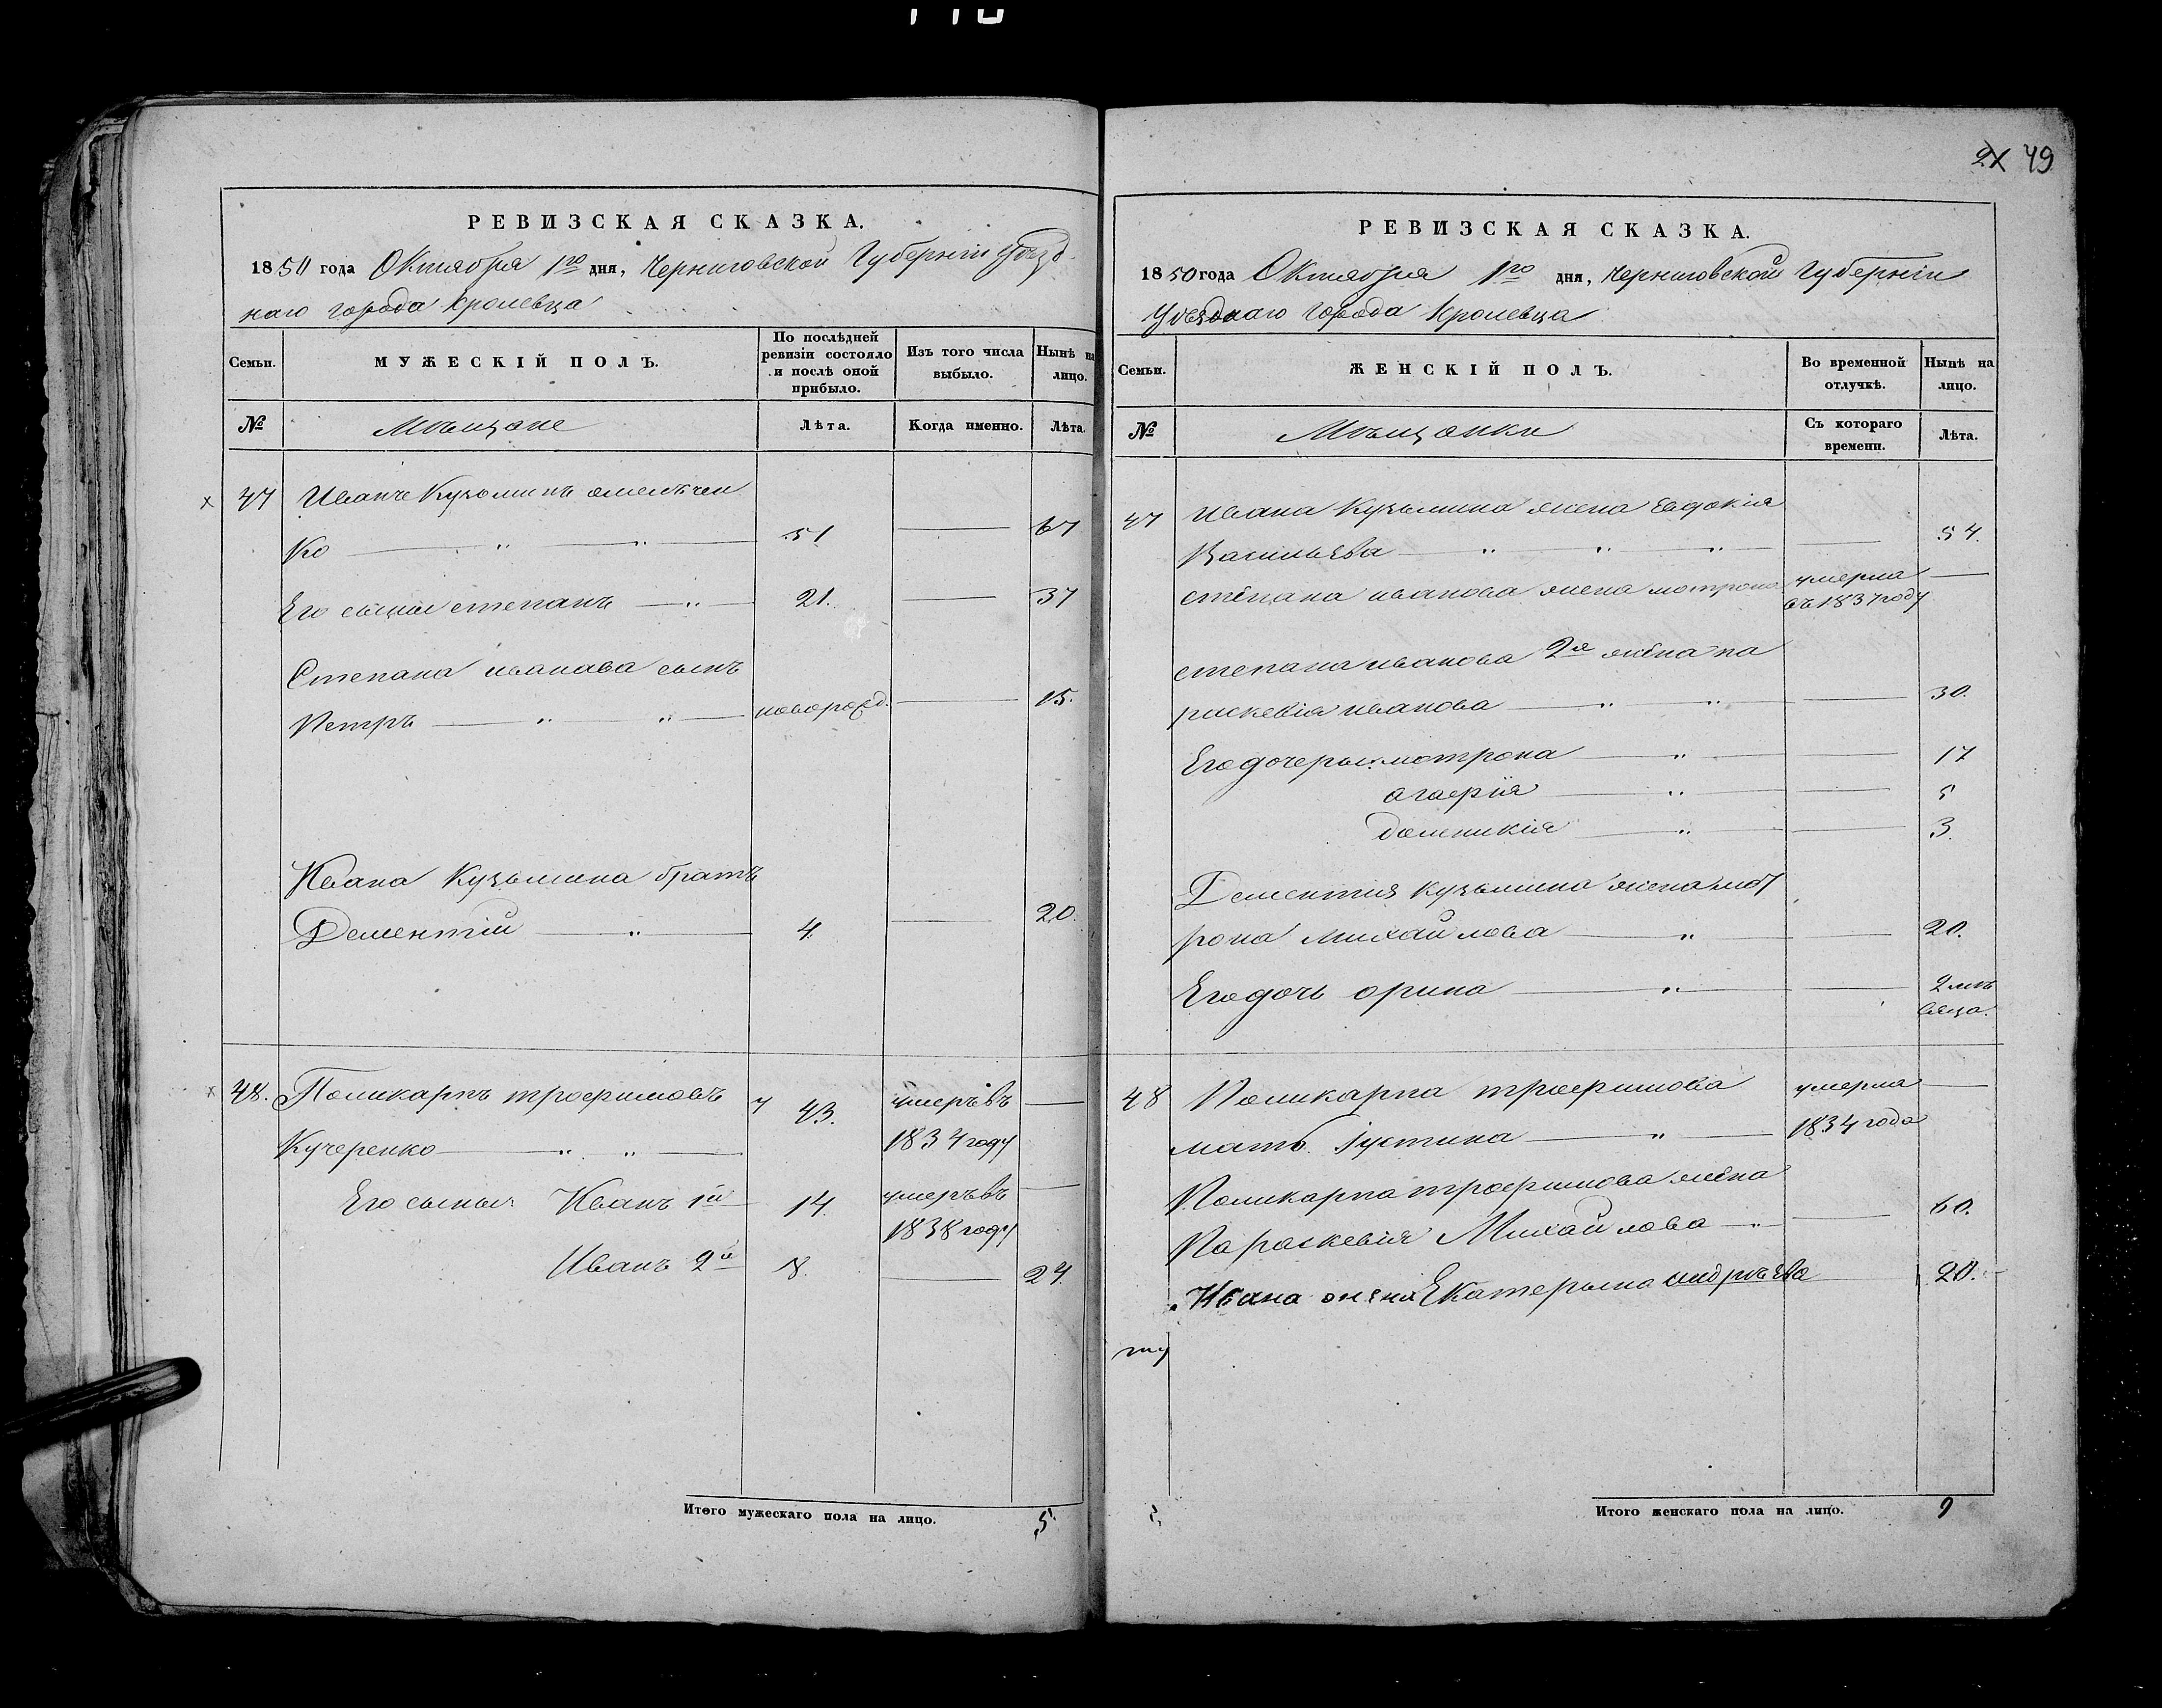 49
РЕВИЗСКАЯ СКАЗКА.
1850 года Октября 1го дня, Черниговской Губерніи уѣзд
наго города Кролевца
Семьи.
МУЖЕСКІЙ ПОЛЪ.
По послѣдней ревизіи состояло и послѣ оной прибыло.
Изъ того числа выбыло.
Нынѣ на лицо.
№
Мѣщане
Лѣта.
Когда именно.
Лѣта.
47 Иванъ Кузьминъ омельчен
ко 51 67
Его сыны степанъ 21. 37
Степана иванова сынъ
Петръ новорожд. 15.
Ивана Кузьмина братъ
Дементій 4 20.
48. Поликарпъ трофимовъ 43. умеръ въ
Кучеренко 1834 году
Его сыны Иванъ 1й 14. умеръ въ
1838 году
Иванъ 2й 8. 24.
Итого мужескаго пола на лицо. 5
РЕВИЗСКАЯ СКАЗКА.
1850 года Октября 1го дня, Черниговской Губерніи
Уѣзднаго Города Кролевца
Семьи.
ЖЕНСКІЙ ПОЛЪ.
Во временной отлучкѣ.
Нынѣ на лицо.
№
Мѣщанки
Съ котораго времени.
Лѣта.
47 Ивана Кузьмина жена Евдокія
Васильева 54.
степана иванова жена мотрона умерла
въ 1837 году
степана иванова 2я жена па
раскевія иванова 30.
Его дочеры мотрона 17
агафія 5
доменикія 3.
Дементія кузьмина жена мот
рона Михайлова 20.
Его дочь орина 2 мѣ
сяца.
48 Поликарпа трофимова умерла
мать Іустина 1834 года
Поликарпа трофимова жена
Параскевія Михайлова 60.
Ивана жена Екатерына андрѣева 20.
Итого женскаго пола на лицо. 9